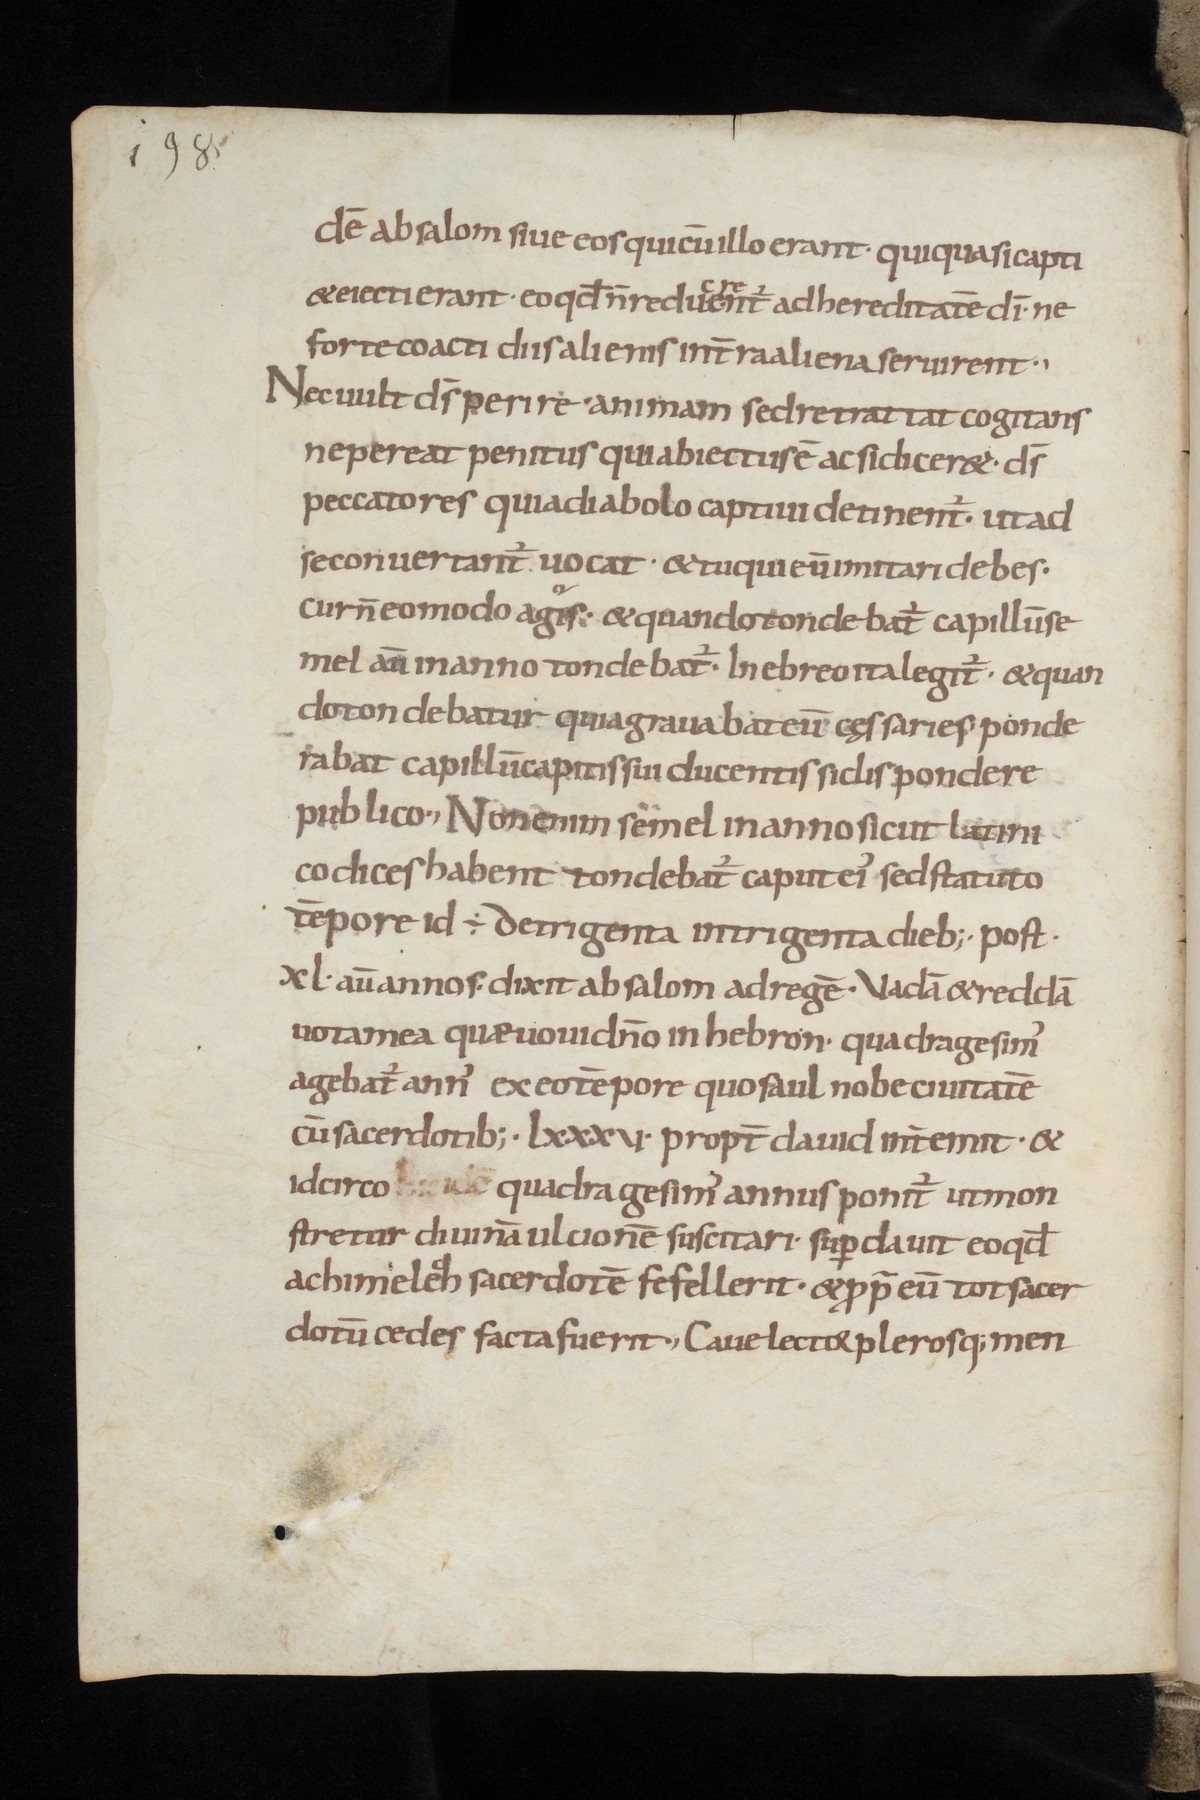 198
dē absalom siue eos qui cū illo erant· qui quasi capti
& eiecti erant· eo qđ n̄ reducerent᷑ ad hereditatē dī· ne
forte coacti diis alienis int̄ra aliena seruirent·,
Nec uult ds̄ perire· animam sed retrattat cogitans
ne pereat penitus qui abiectus ē ac si dicer&· ds̄
peccatores qui a diabolo captiui detinent᷑· ut ad
se conuertant᷑ uocat· & tu qui eū imitari debes·
cur n̄ eo modo agis· & quando tondebat᷑ capillū se
mel aū in anno tondebat᷑· In ebreo ita legit᷑· & quan
do tondebatur quia grauabat eū cęssaries ponde
rabat capillū capitis sui ducentis siclis pondere
publico·, Non enim semel in anno sicut latini
codices habent tondebat᷑ caput ei᾽ sed statuto
tēpore id ÷ De trigenta in trigenta dieb;· post·
xl· aū annos· dixit absalom ad regē· Vadā & reddā
uota mea quæ uoui dn̄o in hebron· quadragesim᾽
agebat᷑ ann᾽ ex eo tēpore quo saul nobe ciuitatē
cū sacerdotib;· lxxxv· propt̄ dauid int̄emit· &
idcirco quadragesim᾽ annus ponit᷑ ut mon
stretur diuinā ulcionē suscitari· suꝑ dauit eo qđ
achimelech sacerdotē fefellerit· & ꝓpt̄ eū tot sacer
dotū cedes facta fuerit·, Caue lector plerosq; men